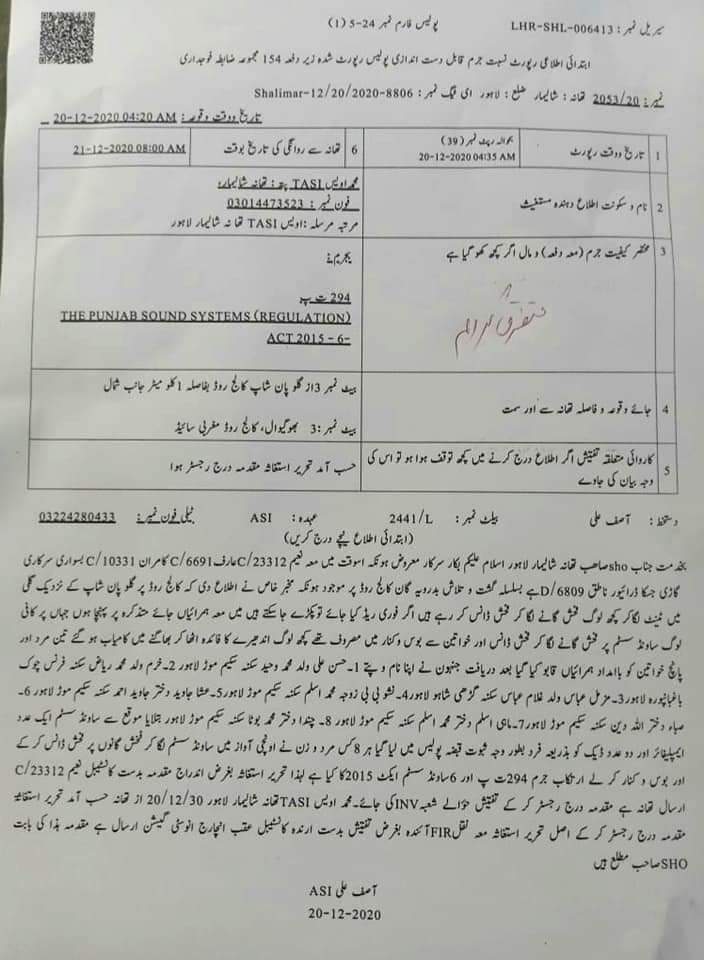 سیریل نمبر : LHR-SHL-006413
پولیس فارم نمبر 24-5 (1)
ابتدائی اطلاعی رپورٹ نسبت جرم قابل دست اندازی پولیس رپورٹ شدہ زیر دفعہ 154 مجموعہ ضابطہ فوجداری
نمبر : 2053/20 تھانہ : شالیمار ضلع : لاہور ای ٹیگ نمبر : Shalimar-12/20/2020-8806
تاریخ ووقت وقوعہ : 20-12-2020 04:20 AM
1 تاریخ ووقت رپورٹ بحوالہ رپٹ نمبر (39) 20-12-2020 04:35 AM 6 تھانہ سے روانگی کی تاریخ بوقت 21-12-2020 08:00 AM
2 نام و سکونت اطلاع دہندہ مستغیث محمد اویس TASI پتہ : تھانہ شالیمار،
فون نمبر : 03014473523
مرتبہ مرسلہ : اویس TASI تھانہ شالیمار لاہور
3 مختصر کیفیت جرم (معہ دفعہ) و مال اگر کچھ کھو گیا ہے
متفرق جرائم
294 ت پ
THE PUNJAB SOUND SYSTEMS (REGULATION)
ACT 2015 - 6-
4 جائے وقوعہ و فاصلہ تھانہ سے اور سمت بیٹ نمبر 3 از گلو پان شاپ کالج روڈ بفاصلہ 1 کلو میٹر جانب شمال
بیٹ نمبر : 3 بھوگیوال، کالج روڈ مغربی سائیڈ
5 کاروائی متعلقہ تفتیش اگر اطلاع درج کرنے میں کچھ توقف ہوا ہو تو اس کی وجہ بیان کی جاوے حسب آمد تحریر استغاثہ مقدمہ درج رجسٹر ہوا
دستخط : آصف علی بیلٹ نمبر : 2441/L عہدہ : ASI ٹیلی فون نمبر : 03224280433
(ابتدائی اطلاع نیچے درج کریں)
بخدمت جناب sho صاحب تھانہ شالیمار لاہور اسلام علیکم بکار سرکار معروض ہونکہ اسوقت میں معہ نعیم C/23312 عارف C/6691 کامران C/10331 بسواری سرکاری
گاڑی جسکا ڈرائیور ناطق D/6809 ہے بسلسلہ گشت و تلاش بدرویہ گان کالج روڈ پر موجود ہونکہ مخبر خاص نے اطلاع دی کہ کالج روڈ پر گلو پان شاپ کے نزدیک گلی
میں ٹینٹ لگا کر کچھ لوگ فحش گانے لگا کر فحش ڈانس کر رہے ہیں اگر فوری ریڈ کیا جائے تو پکڑے جاسکتے ہیں میں معہ ہمرائیاں جائے متذکرہ پر پہنچا ہوں جہاں پر کافی
لوگ ساونڈ سسٹم پر فحش گانے لگا کر فحش ڈانس اور خواتین سے بوس و کنار میں مصروف تھے کچھ لوگ اندھیرے کا فائدہ اٹھا کر بھاگنے میں کامیاب ہو گئے تین مرد اور
پانچ خواتین کو باامداد ہمرائیاں قابو کیا گیا بعد دریافت جنہوں نے اپنا نام و پتے 1۔حسن علی ولد محمد وحید سکنہ سکیم موڑ لاہور 2۔ خرم ولد محمد ریاض سکنہ فرنس چوک
باغبانپورہ لاہور 3۔مزمل عباس ولد غلام عباس سکنہ گڑھی شاہو لاہور 4۔نشو بی بی زوجہ محمد اسلم سکنہ سکیم موڑ لاہور 5۔عشا جاوید دختر جاوید احمد سکنہ سکیم موڑ لاہور 6۔
صباء دختر اللہ دین سکنہ سکیم موڑ لاہور 7۔ماہی اسلم دختر محمد اسلم سکنہ سکیم موڑ لاہور 8۔ چندا دختر محمد بوٹا سکنہ سکیم موڑ لاہور بتلایا موقع سے ساونڈ سسٹم ایک عدد
ایمپلیفائر اور دو عدد ڈیک کو بذریعہ فرد بطور وجہ ثبوت قبضہ پولیس میں لیا گیا ہر 8 کس مرد و زن نے اونچی آواز میں ساونڈ سسٹم لگا کر فحش گانوں پر فحش ڈانس کر کے
اور بوس و کنار کر لے ارتکاب جرم 294 ت پ اور 6 ساونڈ سسٹم ایکٹ 2015 کا کیا ہے لہذا تحریر استغاثہ بغرض اندراج مقدمہ بدست کانسٹیبل نعیم C/23312
ارسال تھانہ ہے مقدمہ درج رجسٹر کر کے تفتیش حوالے شعبہ INV کی جائے۔محمد اویس TASI تھانہ شالیمار لاہور 20/12/30 از تھانہ حسب آمد تحریر استغاثہ
مقدمہ درج رجسٹر کر کے اصل تحریر استغاثہ معہ نقل FIR آئندہ بغرض تفتیش بدست ارندہ کانسٹیبل عقب انچارج انوسٹی گیشن ارسال ہے مقدمہ ہذا کی بابت
SHO صاحب مطلع ہیں
آصف علی ASI
20-12-2020